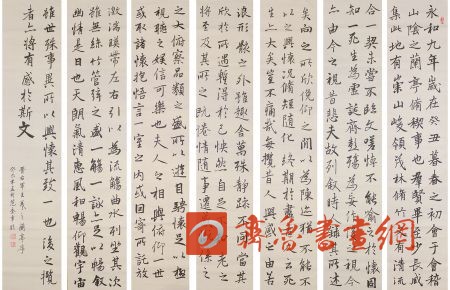 永和九年歲在癸丑暮春之初會于會稽
山陰之蘭亭脩稧事也群賢畢至少長咸
集此地有崇山峻領茂林脩竹又有清流
合一契未嘗不臨文嗟悼不能喻之於懷固
知一死生為虛誕齊彭殤為妄作後之視今
亦由今之視昔悲夫故列敘時人錄其所述
矣向之所欣俛仰之間以為陳迹猶不能不
以之興懷況脩短隨化終期於盡古人云死
生亦大矣豈不痛哉每攬昔人興感之由若
浪形骸之外雖趣舍萬殊靜躁不同當其
欣於所遇蹔得於己快然自足不知老之
將至及其所之既惓情隨事遷感慨係之
之大俯察品類之盛所以遊目騁懷足以極
視聽之娛信可樂也夫人之相與俯仰一世
或取諸懷抱悟言一室之內或因寄所託放
激湍暎帶左右引以為流觴曲水列坐其次
雖無絲竹管弦之盛一觴一詠亦足以暢敘
幽情是日也天朗氣清惠風和暢仰觀宇宙
雖世殊事異所以興懷其致一也後之攬
者亦將有感於斯文
晉右軍王羲之蘭亭序
齊魯書畫網